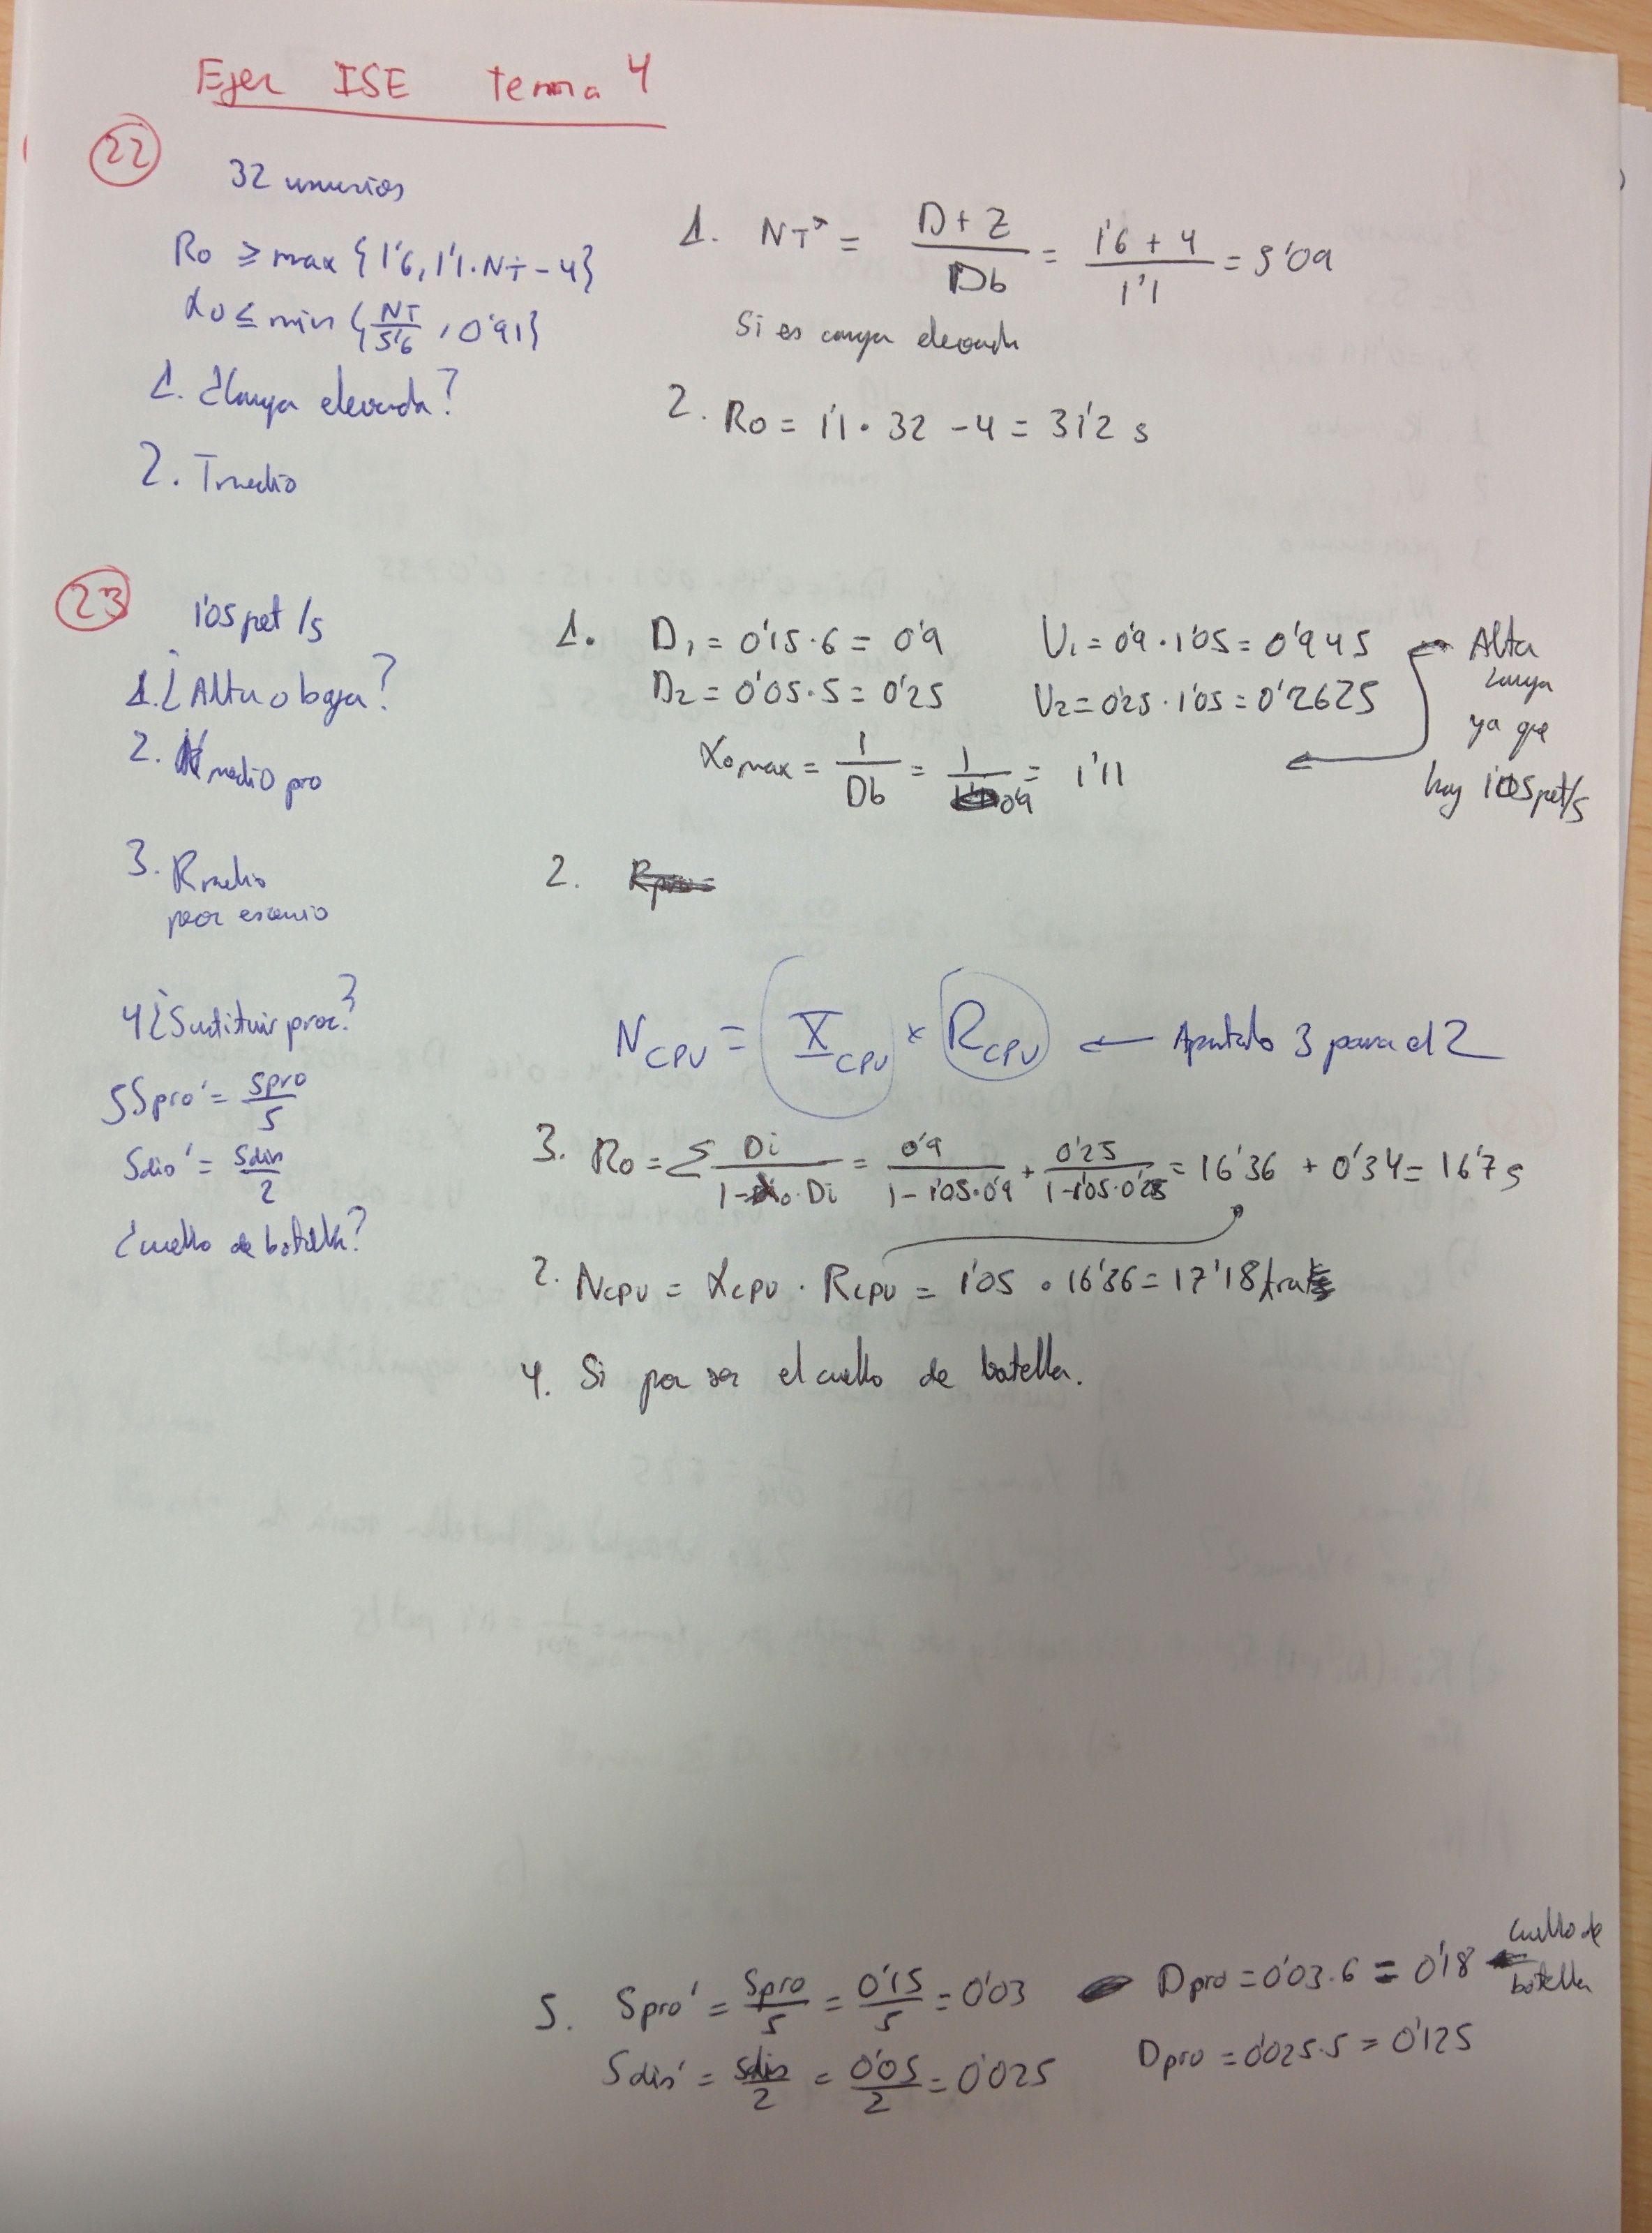 Ejer ISE tema 4
22
32 usuarios
Ro ≥ max {1'6, 1'1·NT - 4}
Xo ≤ min {NT/5'6, 0'91}
1. ¿Carga elevada?
2. Tmedio
1. NT* = (D + Z)/Db = (1'6 + 4)/1'1 = 5'09
Si es carga elevada
2. Ro = 1'1 · 32 - 4 = 31'2 s
23
1'05 pet/s
1. ¿Alta o baja?
2. N medio pro
3. R medio
peor esenio
4 ¿Sustituir proc?
5 Spro' = Spro/5
Sdio' = Sdis/2
¿cuello de botella?
1. D1 = 0'15·6 = 0'9 U1 = 0'9·1'05 = 0'945
D2 = 0'05·5 = 0'25 U2 = 0'25·1'05 = 0'2625
Xomax = 1/Db = 1/0'9 = 1'11
Alta
carga
ya que
hay 1'05 pet/s
2.
NCPU = XCPU × RCPU ← Apartado 3 para el 2
3. Ro = Σ Di/(1-Xo·Di) = 0'9/(1-1'05·0'9) + 0'25/(1-1'05·0'25) = 16'36 + 0'34 = 16'7 s
2. NCPU = XCPU · RCPU = 1'05 · 16'36 = 17'18
4. Si por ser el cuello de botella.
5. Spro' = Spro/5 = 0'15/5 = 0'03 Dpro = 0'03·6 = 0'18 ← Cuello de botella
Sdis' = Sdis/2 = 0'05/2 = 0'025 Dpro = 0'025·5 = 0'125